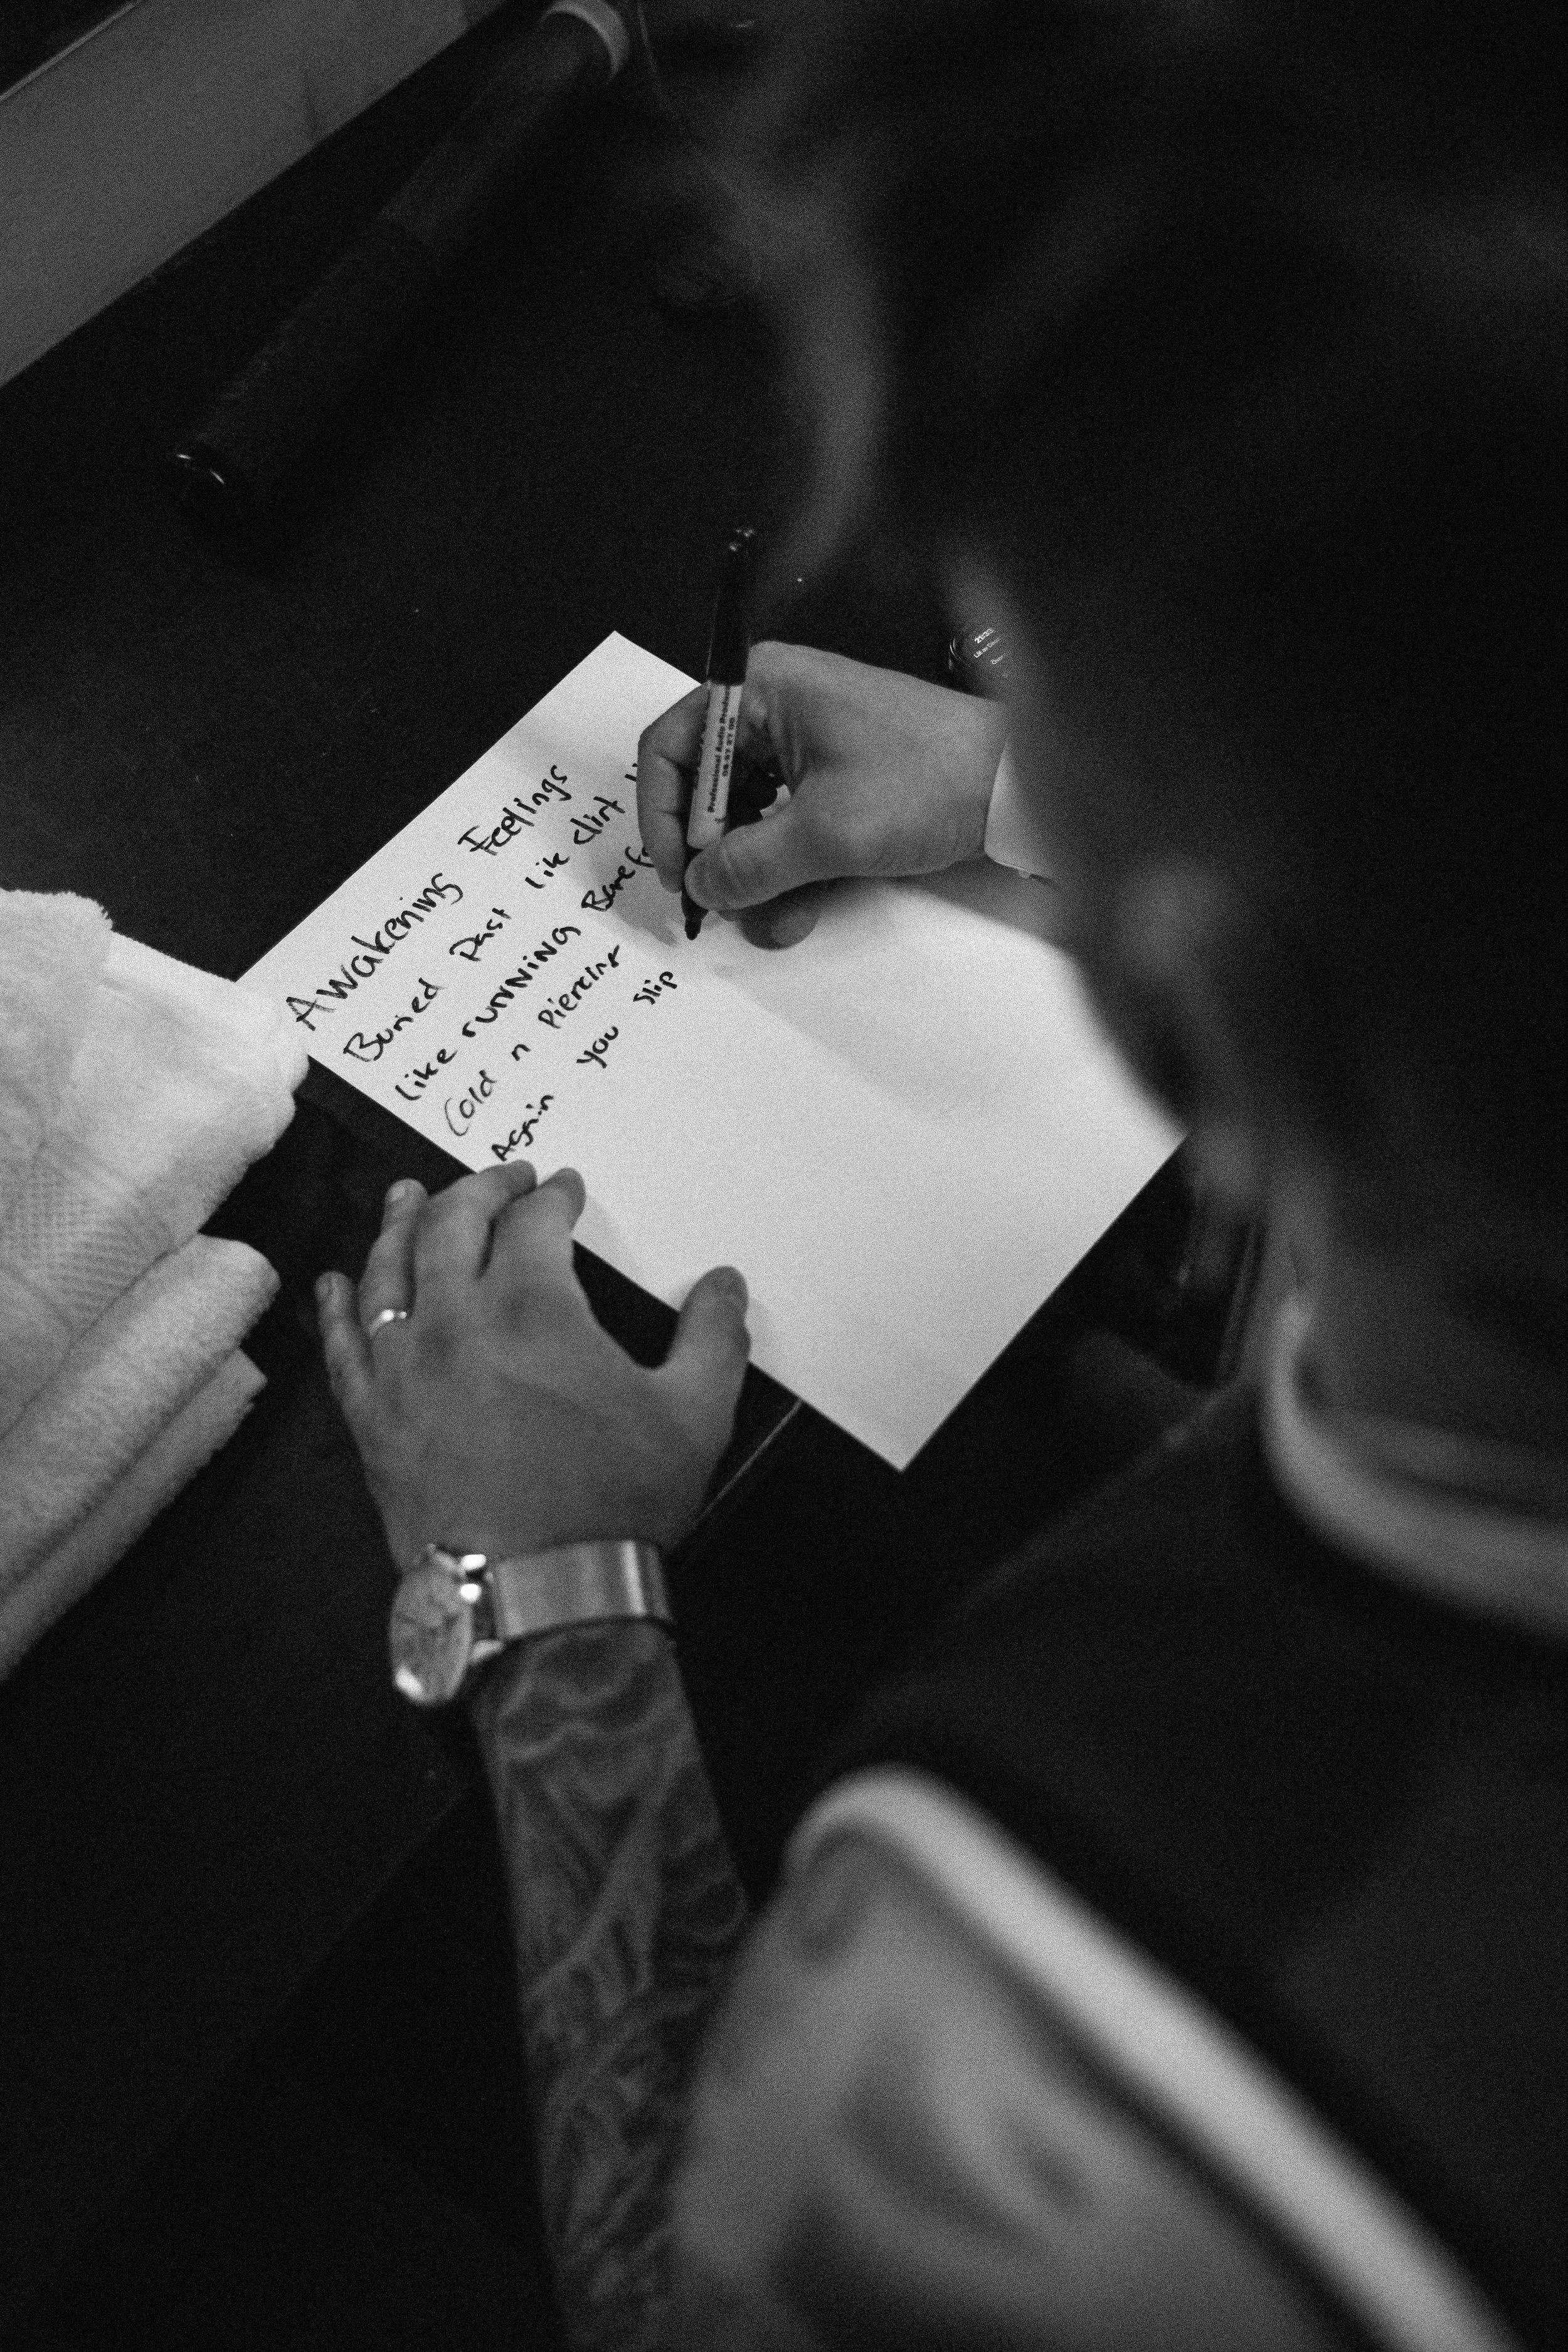 Awakening Feelings
Buried past like dirt
like running
Cold n Piercing
Again you slip
Professional Audio